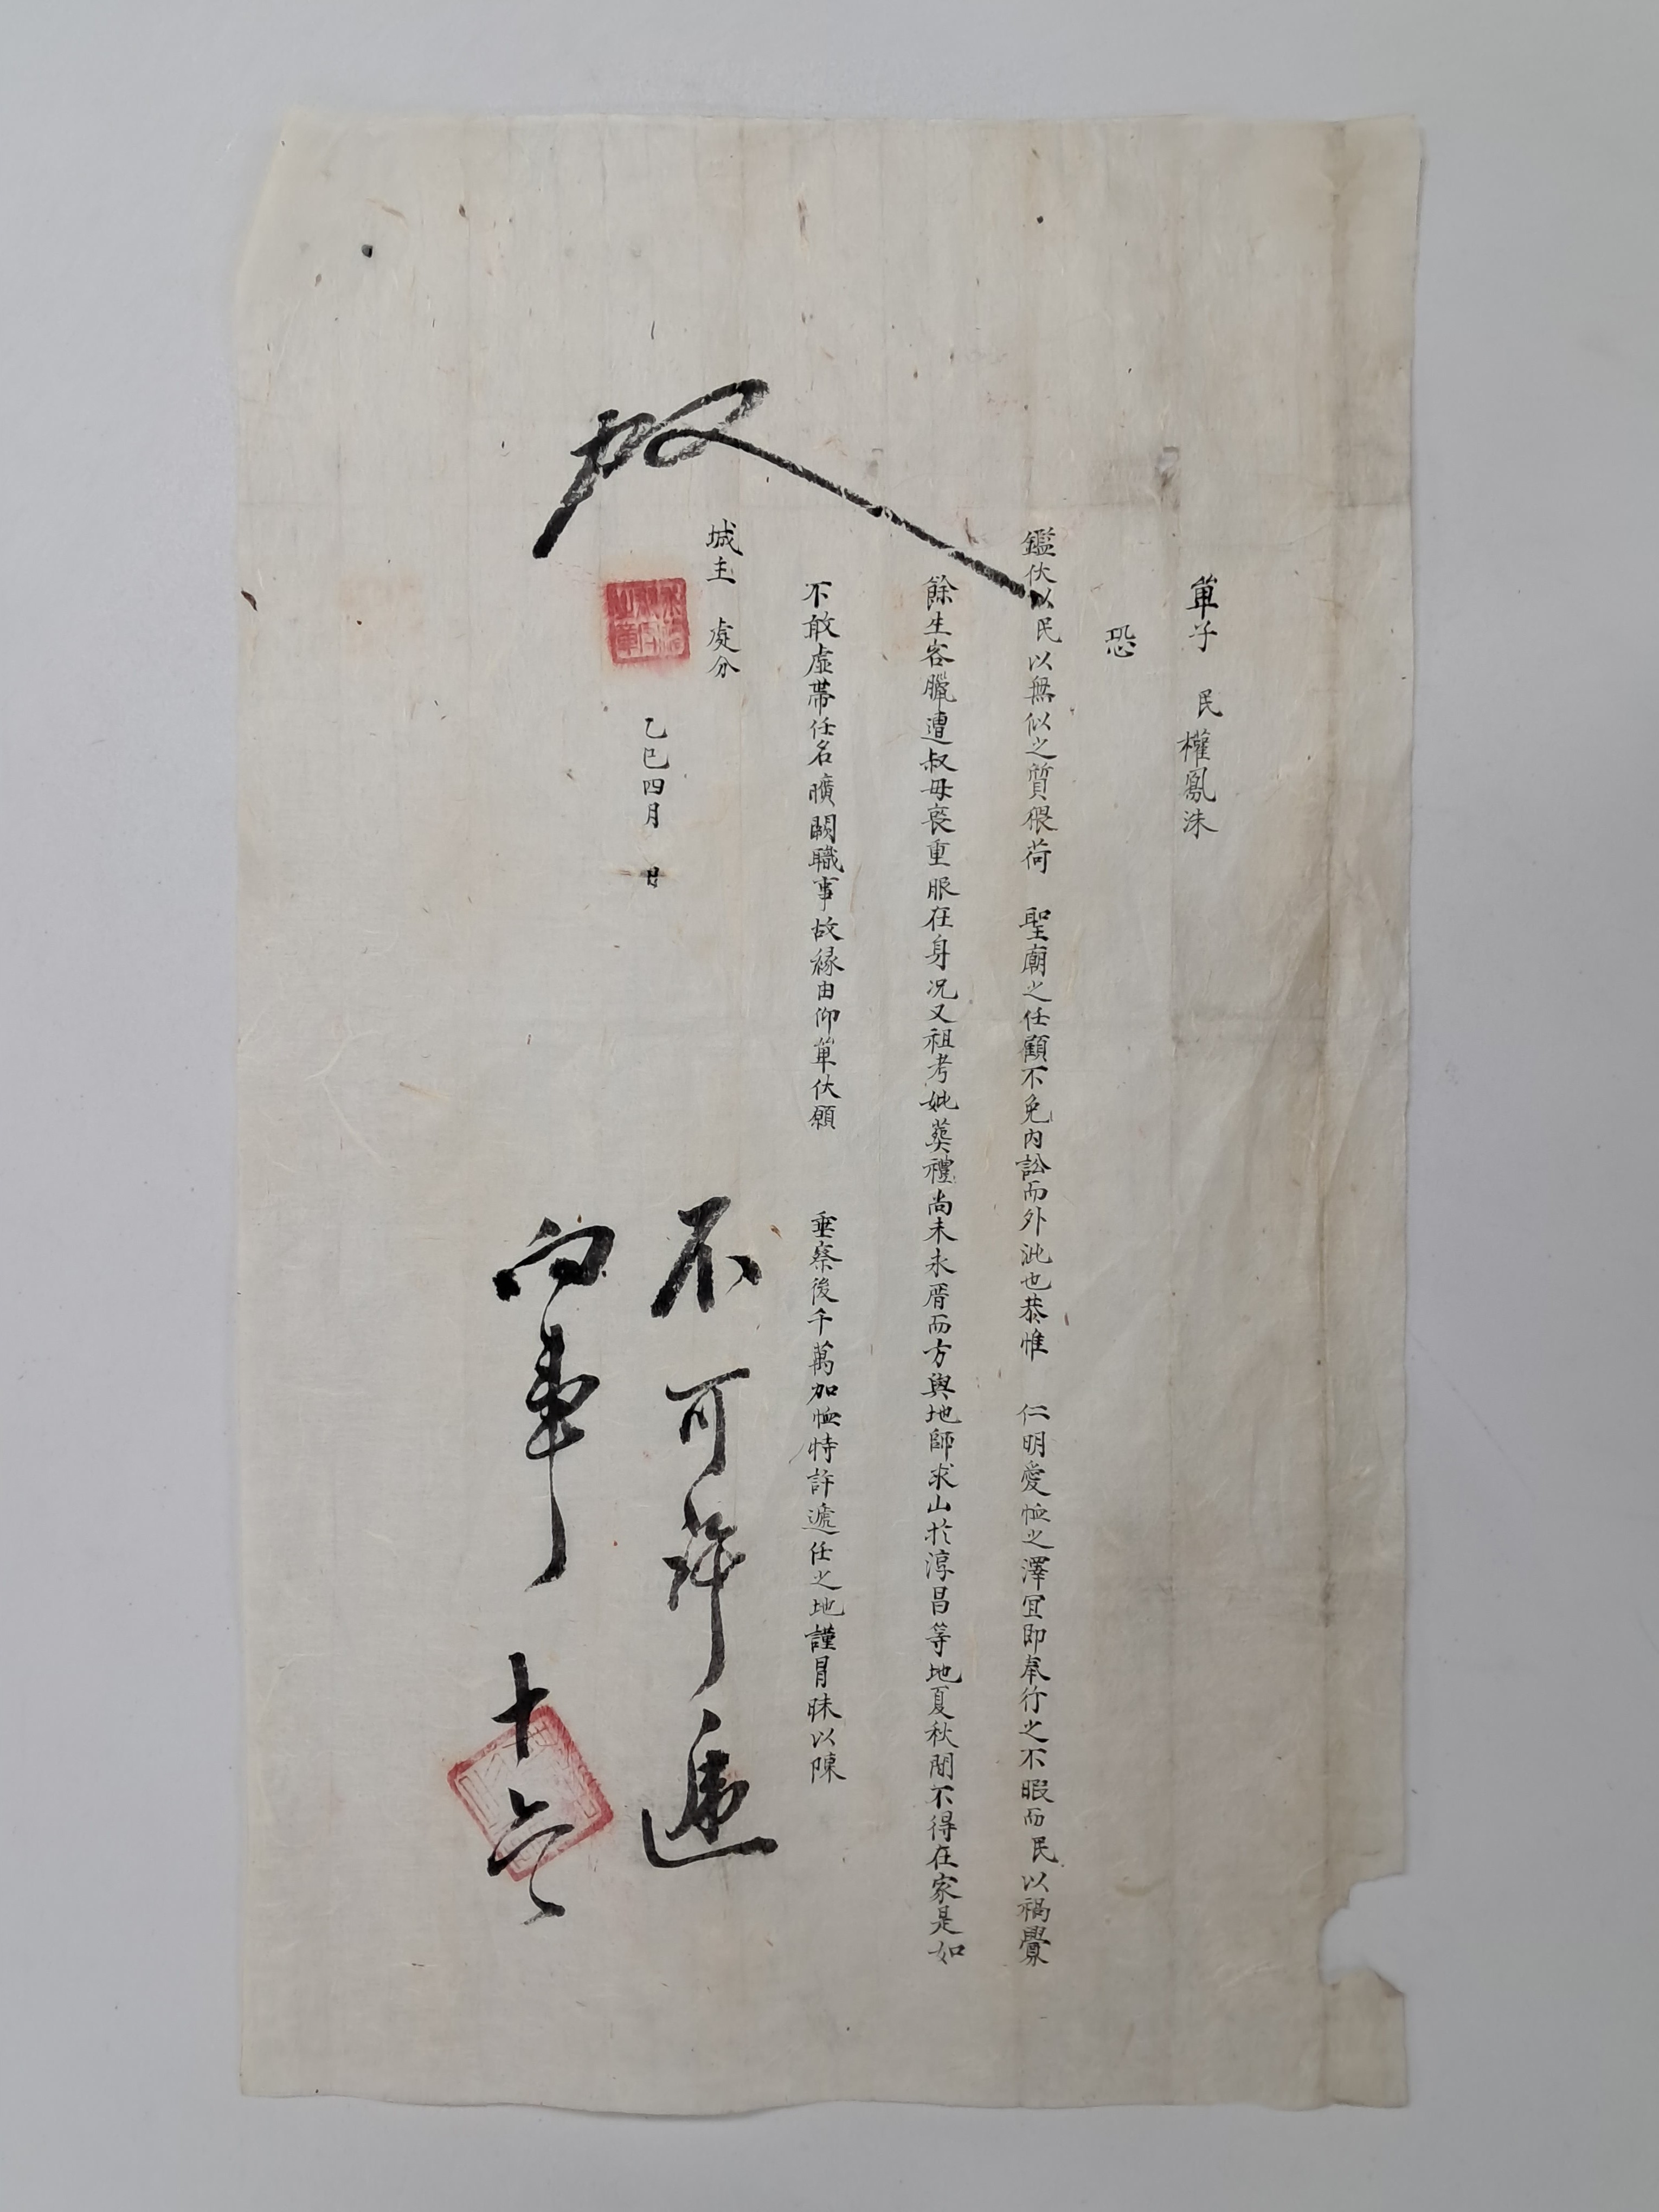 單子 民 權鳳洙
恐
鑑伏以民以無似之質猥荷 聖廟之任顧不免內訟而外泚也恭惟 仁明愛恤之澤宜即奉行之不暇而民以禍釁
餘生客臘遭叔母喪重服在身况又祖考妣葬禮尚未永厝而方與地師求山於淳昌等地夏秋間不得在家是如
不敢虛帶任名曠闕職事故緣由仰單伏願 垂察後千萬加恤特許遞任之地謹冒昧以陳
城主 處分
乙巳四月 日
不可許遞
向事
十六